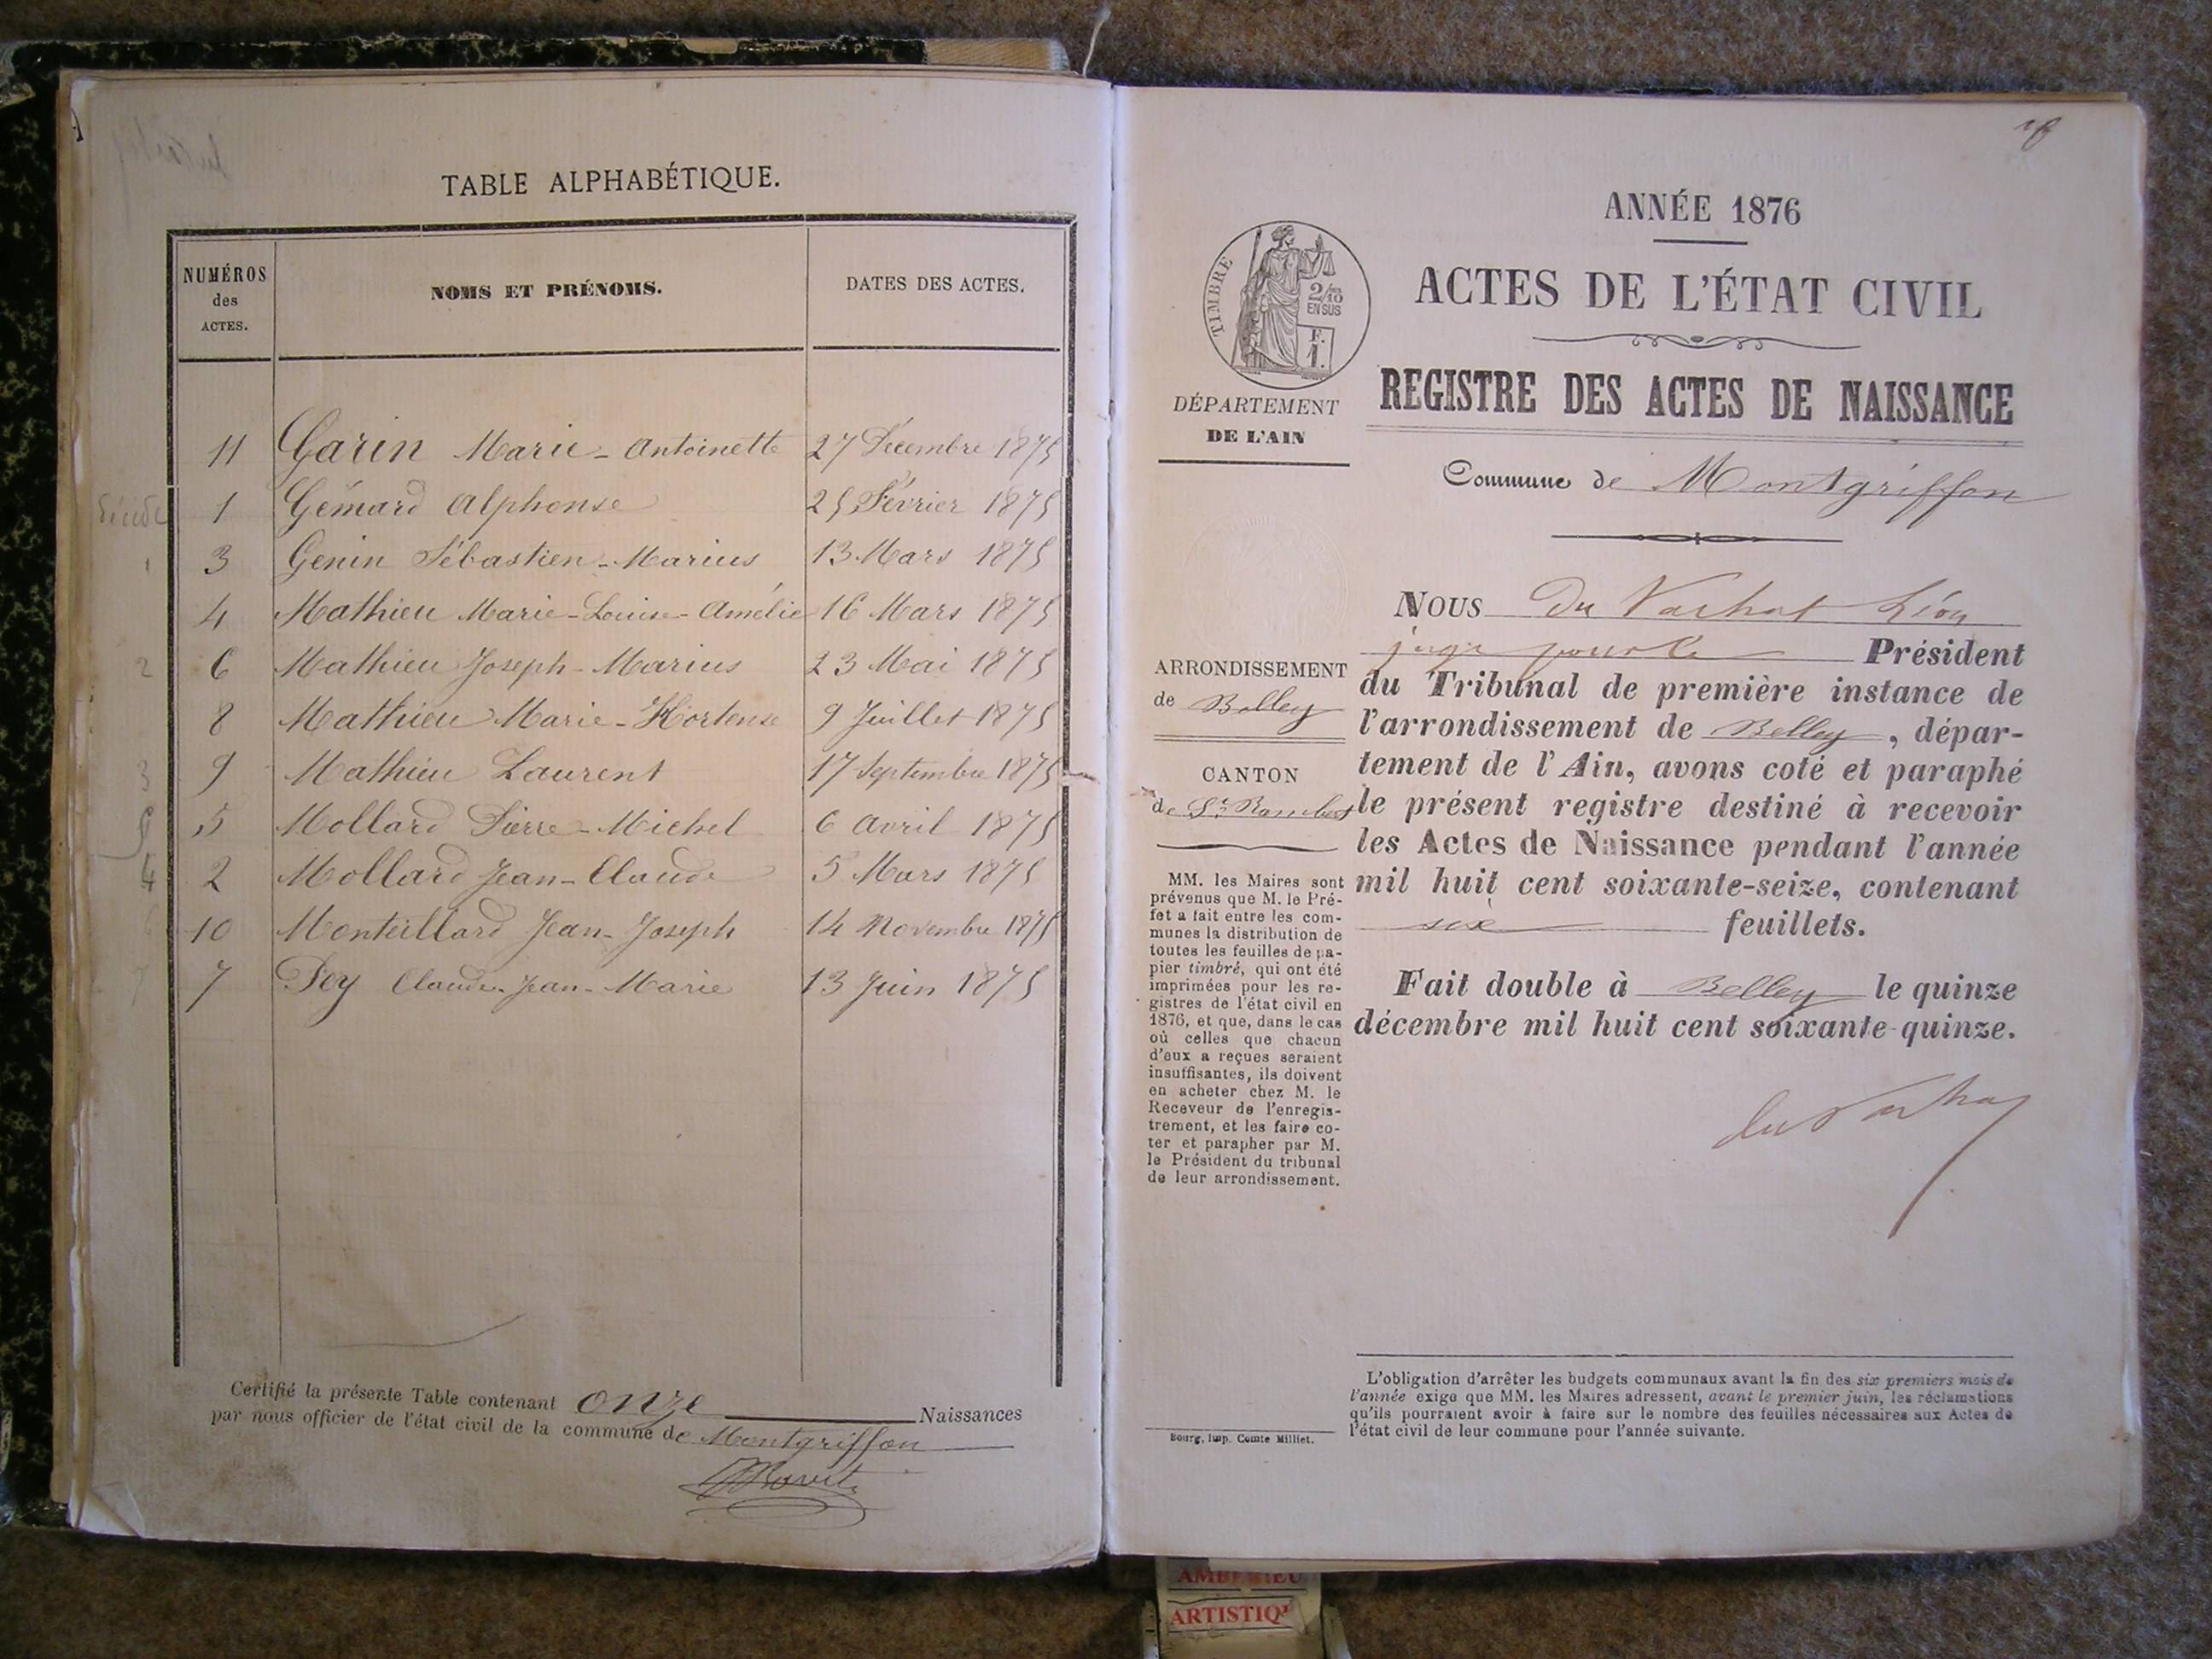 TABLE ALPHABÉTIQUE.
NUMÉROS
des
ACTES.
NOMS ET PRÉNOMS.
DATES DES ACTES.
11 Garin Marie-Antoinette 27 Décembre 1875
1 Gémard Alphonse 25 Février 1875
3 Genin Sébastien-Marius 13 Mars 1875
4 Mathieu Marie-Louise-Amélie 16 Mars 1875
2 6 Mathieu Joseph-Marius 23 Mai 1875
8 Mathieu Marie-Hortense 9 Juillet 1875
3 9 Mathieu Laurent 17 Septembre 1875
5 Mollard Pierre-Michel 6 Avril 1875
4 2 Mollard Jean-Claude 5 Mars 1875
10 Monteillard Jean-Joseph 14 Novembre 1875
7 7 Pey Claude-Jean-Marie 13 Juin 1875
Certifié la présente Table contenant onze Naissances
par nous officier de l'état civil de la commune de Montgriffon
ANNÉE 1876
ACTES DE L'ÉTAT CIVIL
REGISTRE DES ACTES DE NAISSANCE
Commune de Montgriffon
TIMBRE
2/10
EN SUS
F.
1.
DÉPARTEMENT
DE L'AIN
ARRONDISSEMENT
de Belley
CANTON
de St Rambert
MM. les Maires sont
prévenus que M. le Pré-
fet a fait entre les com-
munes la distribution de
toutes les feuilles de pa-
pier timbré, qui ont été
imprimées pour les re-
gistres de l'état civil en
1876, et que, dans le cas
où celles que chacun
d'eux a reçues seraient
insuffisantes, ils doivent
en acheter chez M. le
Receveur de l'enregis-
trement, et les faire co-
ter et parapher par M.
le Président du tribunal
de leur arrondissement.
Bourg, Imp. Comte Milliet.
NOUS Du Vachat Léon
juge pour le Président
du Tribunal de première instance de
l'arrondissement de Belley, dépar-
tement de l'Ain, avons coté et paraphé
le présent registre destiné à recevoir
les Actes de Naissance pendant l'année
mil huit cent soixante-seize, contenant
six feuillets.
Fait double à Belley le quinze
décembre mil huit cent soixante-quinze.
du Vachat
L'obligation d'arrêter les budgets communaux avant la fin des six premiers mois de
l'année exige que MM. les Maires adressent, avant le premier juin, les réclamations
qu'ils pourraient avoir à faire sur le nombre des feuilles nécessaires aux Actes de
l'état civil de leur commune pour l'année suivante.
AMBERIEU
ARTISTIQU